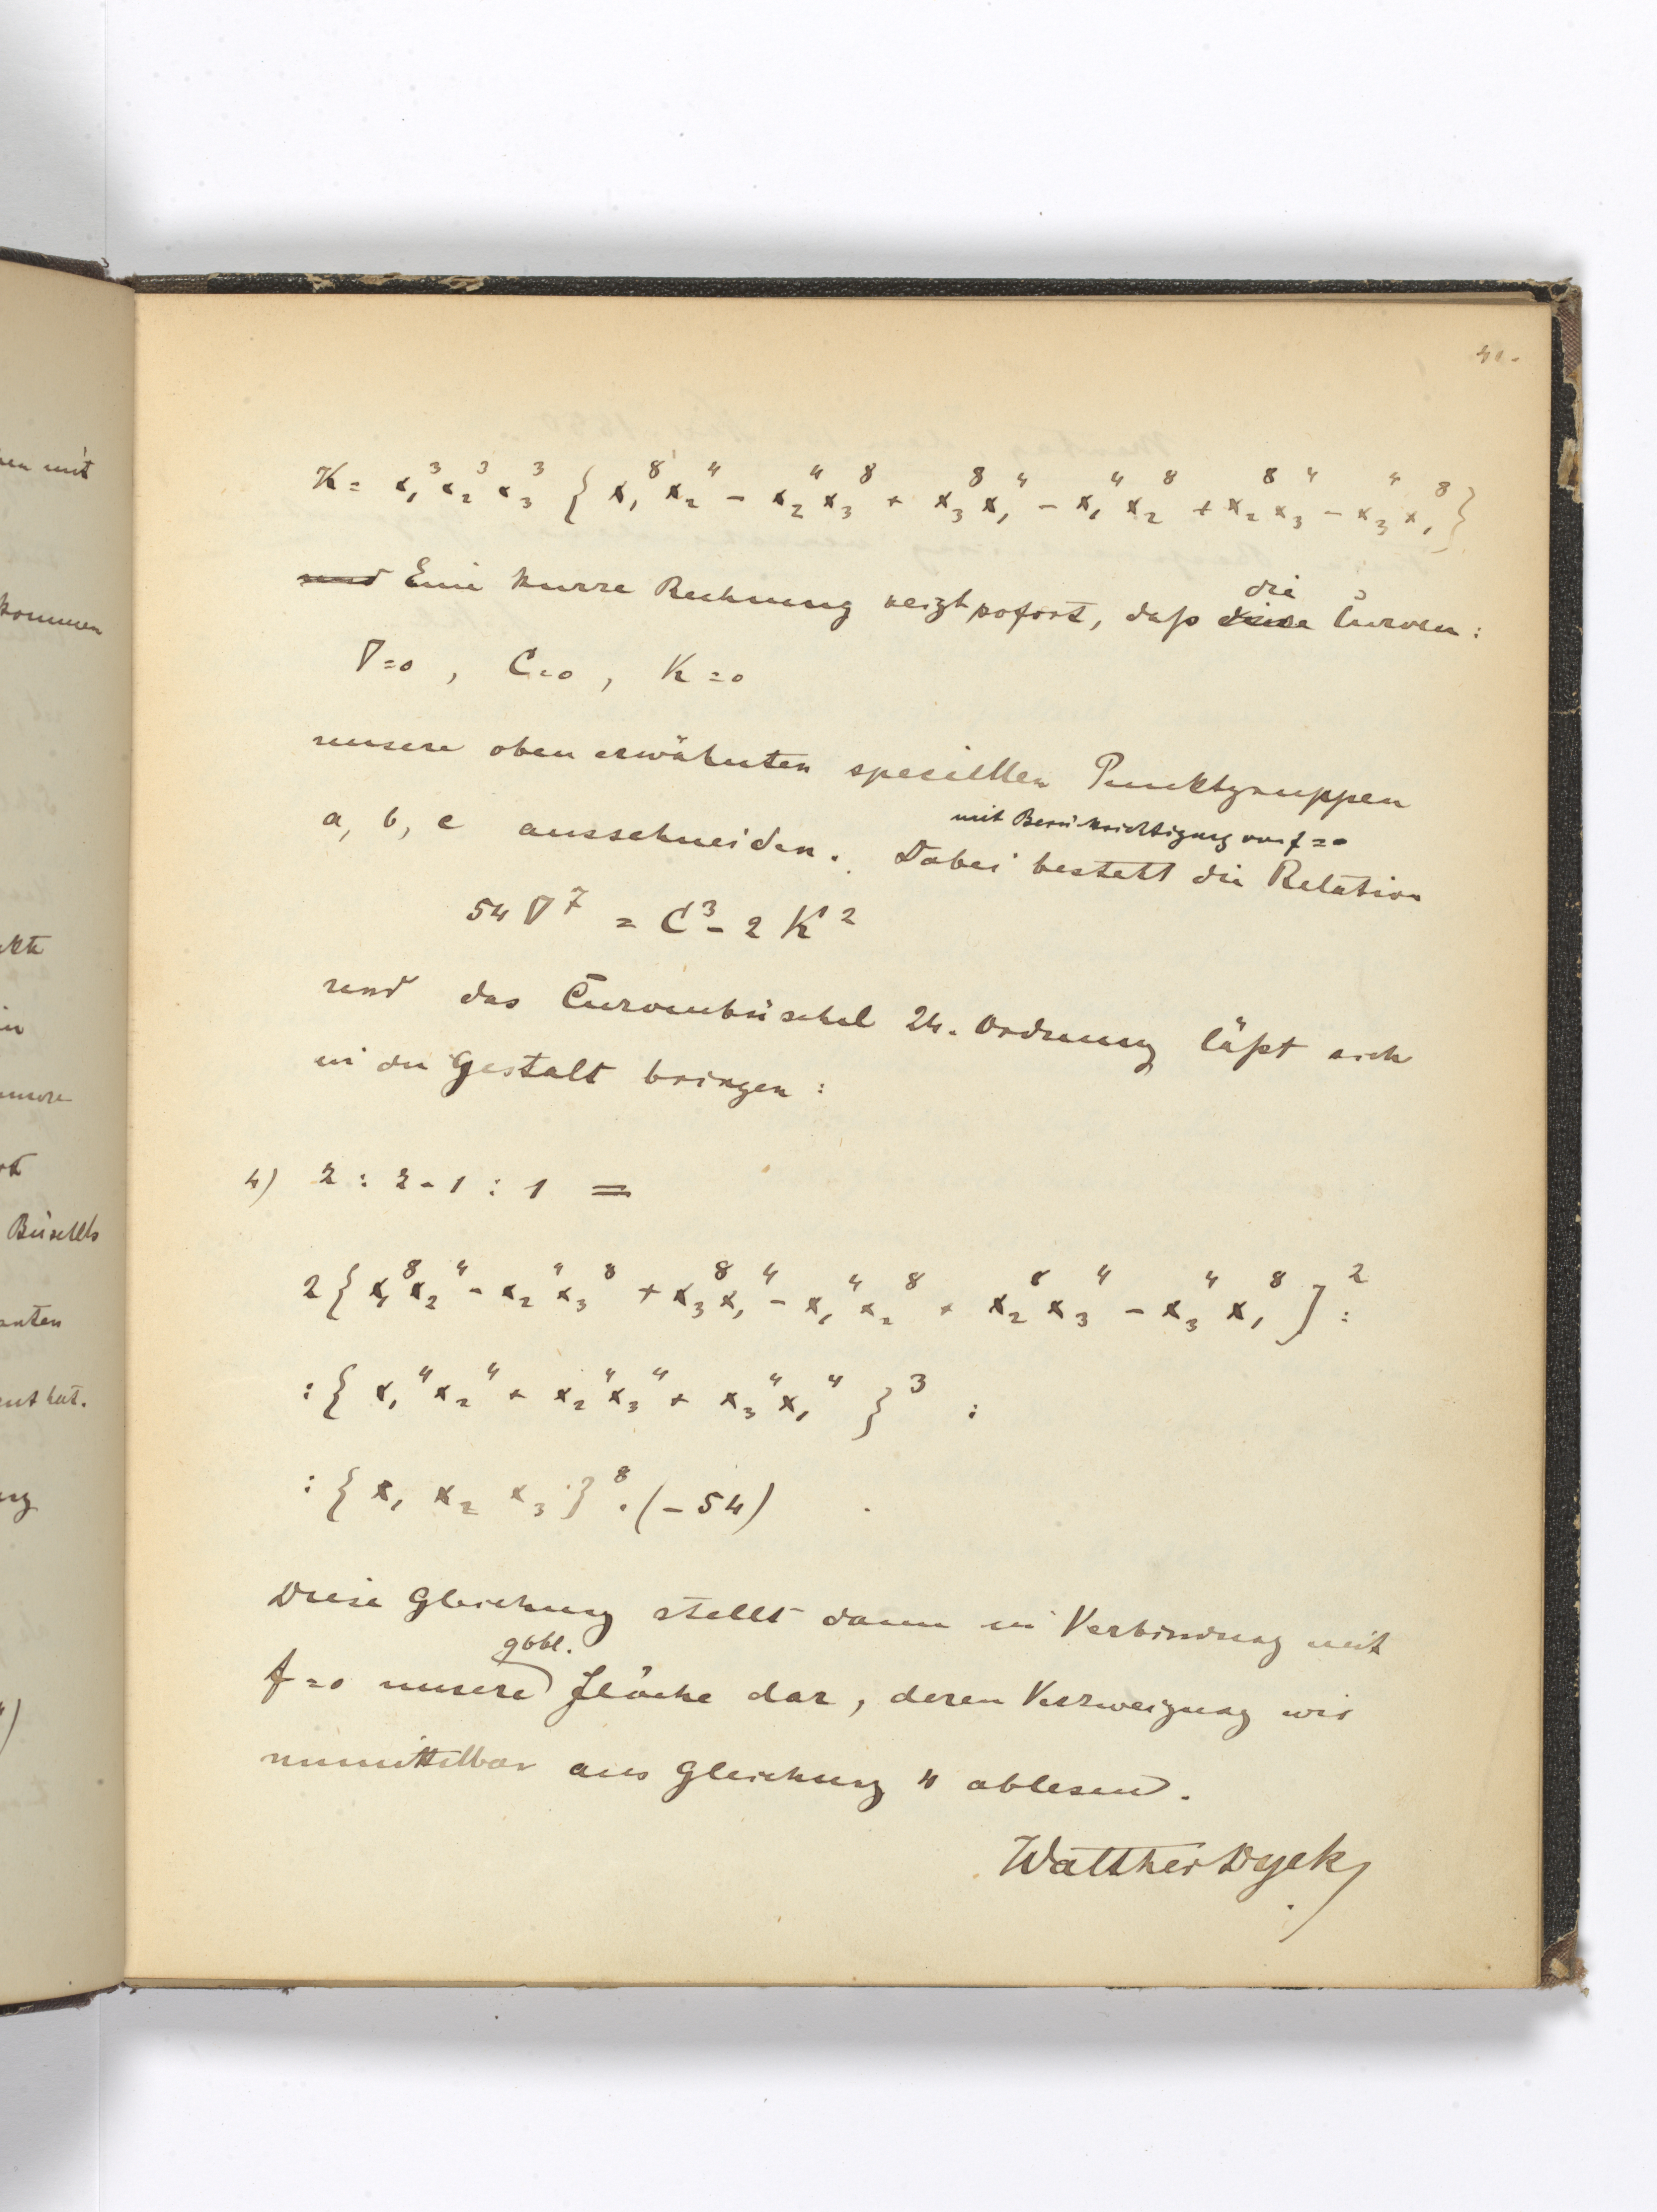 41.
K = x₁³ x₂³ x₃³ { x₁⁸ x₂⁴ - x₂⁴ x₃⁸ + x₃⁸ x₁⁴ - x₁⁴ x₂⁸ + x₂⁸ x₃⁴ - x₃⁴ x₁⁸ }
und Eine kurze Rechnung zeigt sofort, daß die Curven:
∇=0 , C=0 , K=0
unsere oben erwähnten speciellen Punktgruppen
a, b, c ausschneiden. Dabei besteht mit Berücksichtigung von f=0 die Relation
54 ∇⁷ = C³ - 2 K²
und das Curvenbüschel 24. Ordnung läßt sich
in die Gestalt bringen:
4) z : z-1 : 1 =
2 { x₁⁸ x₂⁴ - x₂⁴ x₃⁸ + x₃⁸ x₁⁴ - x₁⁴ x₂⁸ + x₂⁸ x₃⁴ - x₃⁴ x₁⁸ }² :
: { x₁⁴ x₂⁴ + x₂⁴ x₃⁴ + x₃⁴ x₁⁴ }³ :
: { x₁ x₂ x₃ }⁸ . (-54)
Diese Gleichung stellt dann in Verbindung mit
f=0 unsere ggbl. Fläche dar, deren Verzweigung wir
unmittelbar aus Gleichung 4 ablesen.
Walther Dyck
en mit
kommen
Büschels